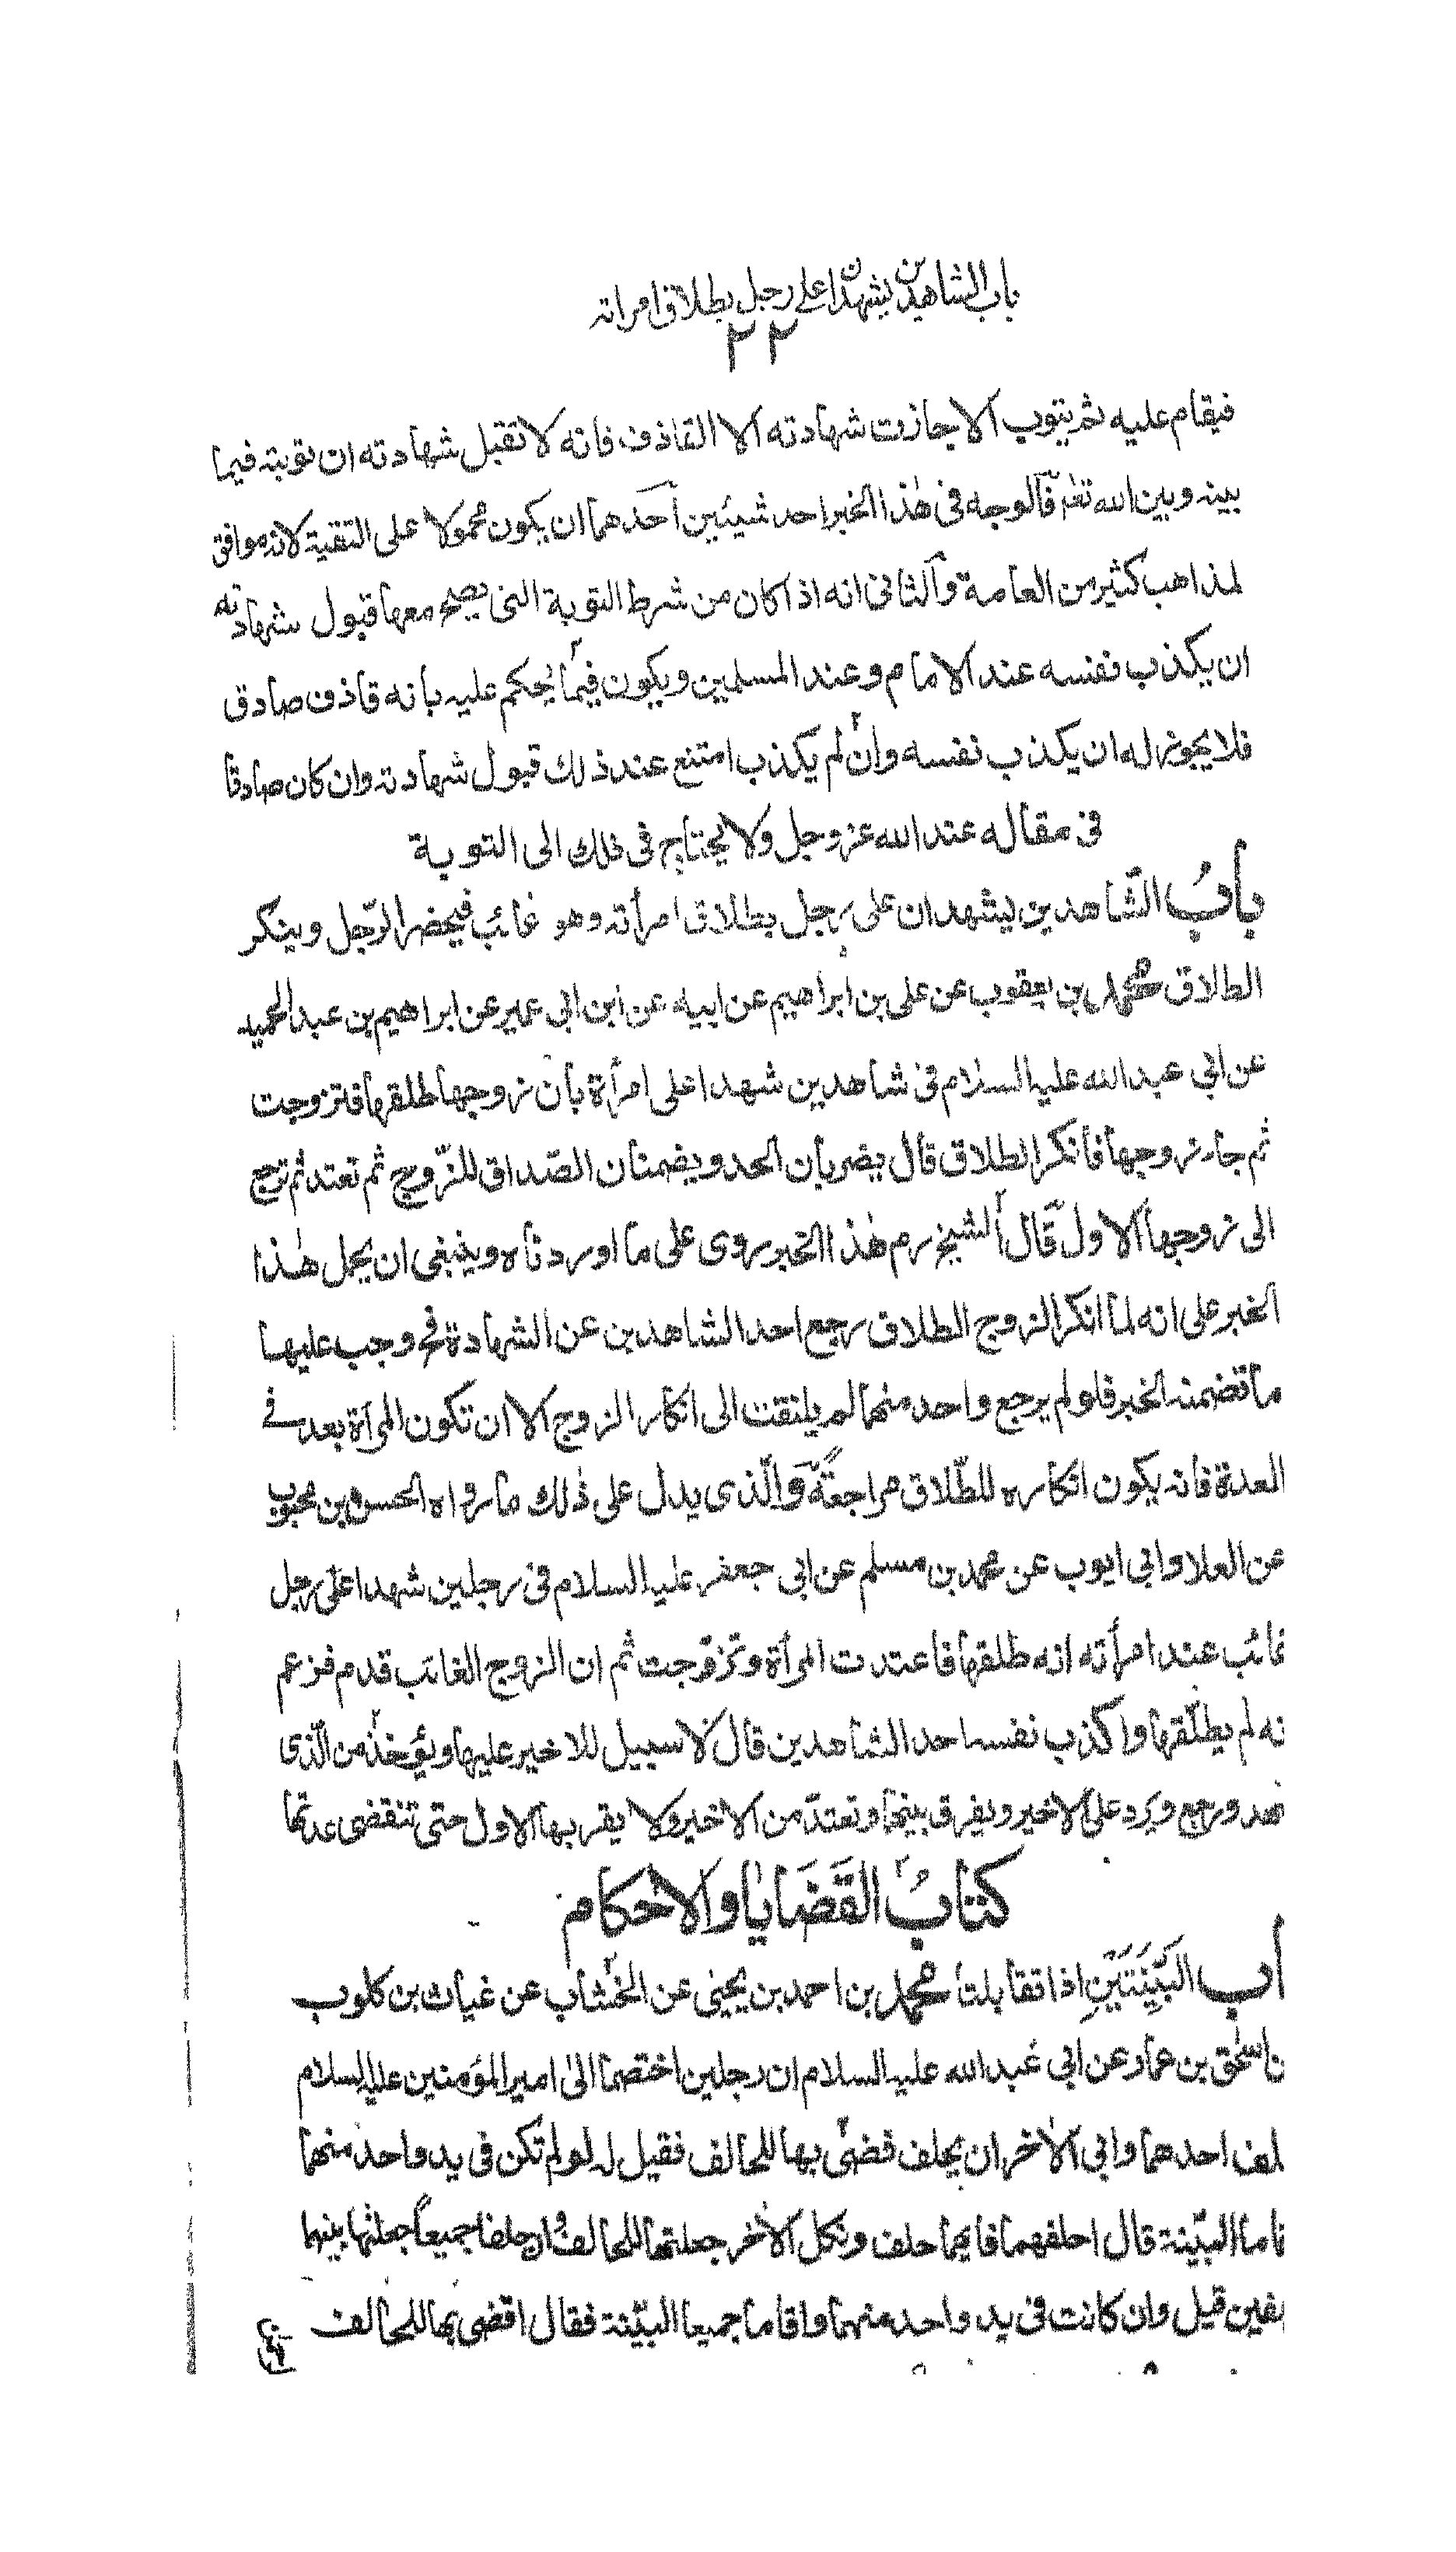 باب الشاهدين يشهدان على رجل بطلاق امراته
٢٢
فيقام عليه ثم يتوب الا جازت شهادته الا القاذف فانه لا تقبل شهادته ان توبته فيما
بينه وبين الله تعه فالوجه فى هذا الخبر احد شيئين احدهما ان يكون محمولا على التقية لانه موافق
لمذاهب كثير من العامة والثانى انه اذا كان من شرط التوبة التى يصح معها قبول شهادته
ان يكذب نفسه عند الامام وعند المسلمين ويكون فيما يحكم عليه بانه قاذف صادق
فلا يجوز له ان يكذب نفسه وان لم يكذب امتنع عند ذلك قبول شهادته وان كان صادقا
فى مقاله عند الله عز وجل ولا يحتاج فى ذلك الى التوبة
باب الشاهدين يشهدان على رجل بطلاق امرأته وهو غائب فيحضر الرّجل وينكر
الطلاق محمد بن يعقوب عن على بن ابراهيم عن ابيه عن ابن ابى عمير عن ابراهيم بن عبد الحميد
عن ابى عبد الله عليه السلام فى شاهدين شهدا على امرأة بان زوجها طلقها فتزوجت
ثم جاء زوجها فانكر الطلاق قال يضربان الحد ويضمنان الصّداق للزّوج ثم تعتد ثم ترجع
الى زوجها الاول قال الشيخ رم هذا الخبر روى على ما اوردناه وينبغى ان يحمل هذا
الخبر على انه لما انكر الزوج الطلاق رجع احد الشاهدين عن الشهادة فح وجب عليها
ما تضمنه الخبر فلو لم يرجع واحد منهما لم يلتفت الى انكار الزوج الا ان تكون المرأة بعد فى
العدة فانه يكون انكاره للطّلاق مراجعة والّذى يدل على ذلك ما رواه الحسن بن محبوب
عن العلا وابى ايوب عن محمد بن مسلم عن ابى جعفر عليه السلام فى رجلين شهدا على رجل
غائب عند امرأته انه طلقها فاعتدت المرأة وتزوّجت ثم ان الزوج الغائب قدم فزعم
نه لم يطلّقها واكذب نفسه احد الشاهدين قال لا سبيل للاخير عليها ويؤخذ من الّذى
شهد ورجع ويرد على الاخير ويفرق بينهما وتعتدّ من الاخير ولا يقربها الاول حتى تنقضى عدتها
كتاب القضايا والاحكام
اب البيّنتين اذا تقابلت محمد بن احمد بن يحيى عن الخشاب عن غياث بن كلوب
ن اسحق بن عمار عن ابى عبد الله عليه السلام ان رجلين اختصما الى امير المؤمنين عليه السلام
لف احدهما وابى الاخر ان يحلف فقضى بها للحالف فقيل له لو لم تكن فى يد واحد منهما
قاما البيّنة قال احلفهما فايهما حلف ونكل الاخر جعلتها للحالف وان حلفا جميعا جعلتها بينهما
فين قيل وان كانت فى يد واحد منهما واقاما جميعا البيّنة فقال اقضى بها للحالف